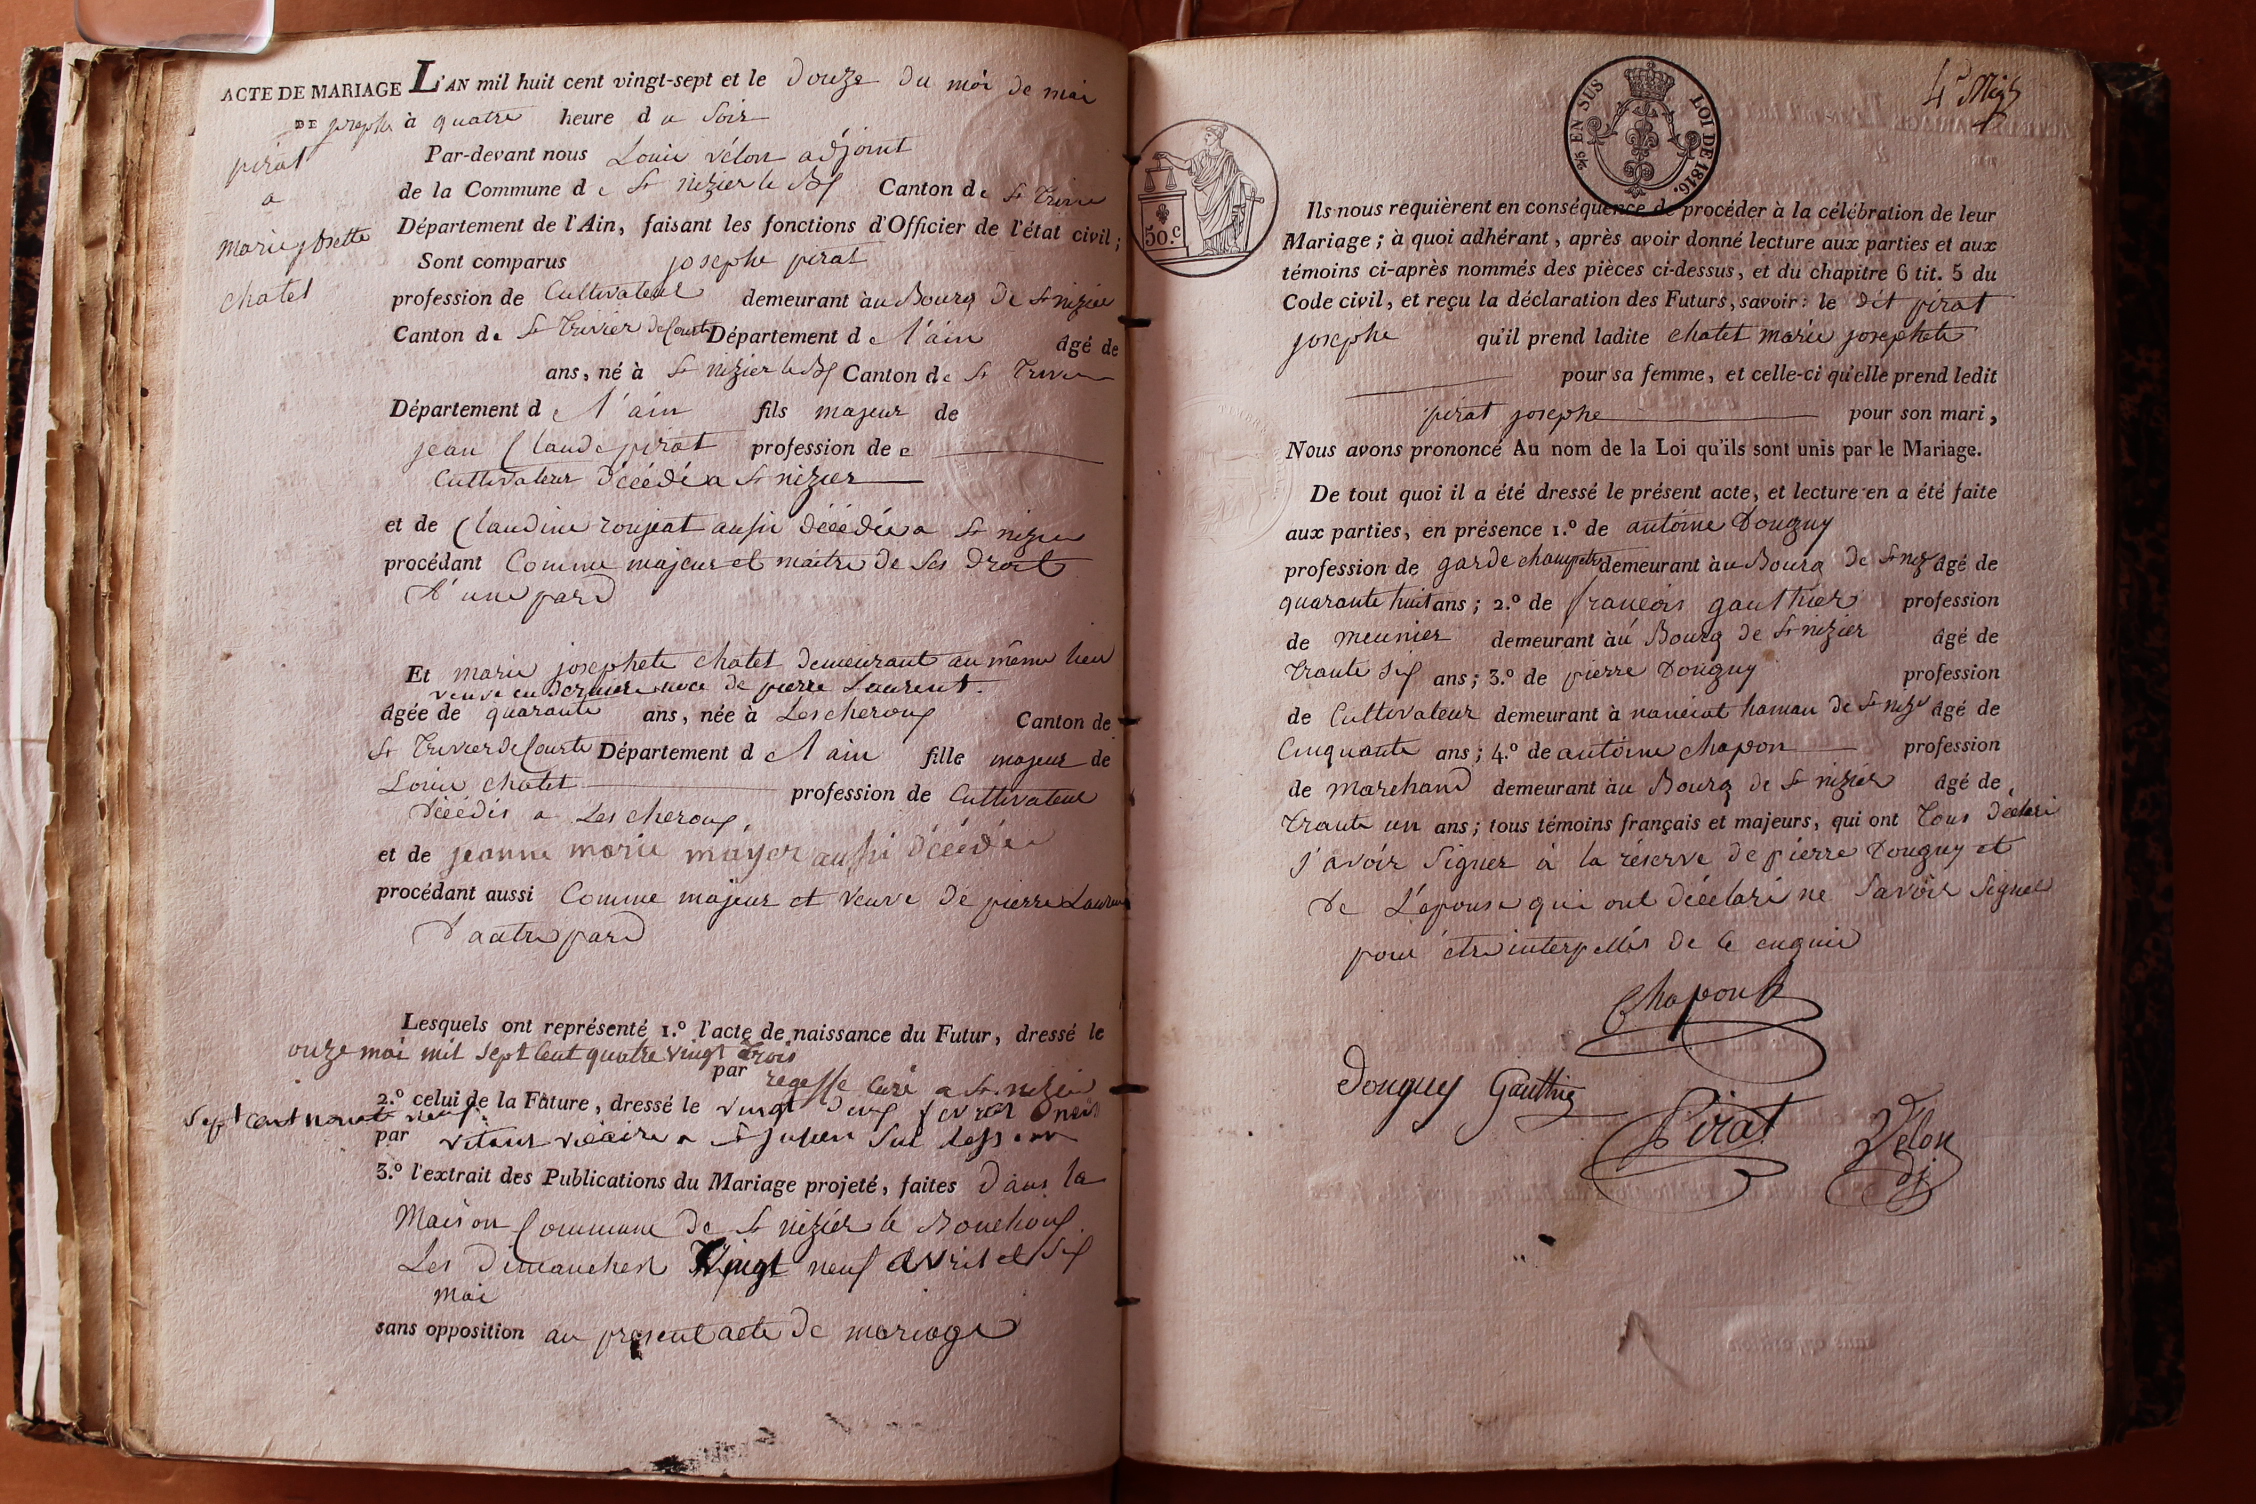 ACTE DE MARIAGE L'AN mil huit cent vingt-sept et le douze du moi de mai
DE josephe à quatre heure du soir
pirat
a
marie josette
chatel
Par-devant nous Louis vélon adjoint
de la Commune de St nizier le Bx Canton de St Trivie
Département de l'Ain, faisant les fonctions d'Officier de l'état civil;
Sont comparus josephe pirat
profession de Cultivateur demeurant à au Bourg de St nizier
Canton de St Trivier de Courte Département de l'ain âgé de
ans, né à St nizier le Bx Canton de St Trivier
Département de l'ain fils majeur de
jean Claude pirat profession de
Cultivateur décédé a St nizier
et de Claudine roujeat aussi décédée a St nizier
procédant Comme majeur et maitre de ses droit
d'une pard
Et marie josephete chatel demeurant au même lieu
veuve en dernière noce de pierre Laurent.
âgée de quarante ans, née à Lescheroux Canton de
St Trivier de Courte Département de l'ain fille majeur de
Louis chatel profession de Cultivateur
décédés a Lescheroux,
et de jeanne marie mayer aussi décédée
procédant aussi Comme majeur et veuve de pierre Laurent
d'autre pard
Lesquels ont représenté 1.º l'acte de naissance du Futur, dressé le
onze mai mil sept cent quatre vingt trois
par Curé a St. nizier
2.º celui de la Future, dressé le vingt deux fevrier
sept cent nonante neuf.
par vicaire a St julien sur
3.º l'extrait des Publications du Mariage projeté, faites dans la
Maison Commune de St nizier le Bouchoux
Les dimanches vingt neuf avril et six
mai
sans opposition au present acte de mariage
50.c
⅖ EN SUS LOI DE 1816.
Ils nous requièrent en conséquence de procéder à la célébration de leur
Mariage; à quoi adhérant, après avoir donné lecture aux parties et aux
témoins ci-après nommés des pièces ci-dessus, et du chapitre 6 tit. 5 du
Code civil, et reçu la déclaration des Futurs, savoir: le dit pirat
josephe qu'il prend ladite chatel marie josephete
pour sa femme, et celle-ci qu'elle prend ledit
pirat josephe pour son mari,
Nous avons prononcé Au nom de la Loi qu'ils sont unis par le Mariage.
De tout quoi il a été dressé le présent acte, et lecture en a été faite
aux parties, en présence 1.º de antoine Douguy
profession de garde champetre demeurant à au Bourg de St niz âgé de
quarante huit ans; 2.º de francois gauthier profession
de meunier demeurant à au Bourg de St nizier âgé de
trante six ans; 3.º de pierre Douguy profession
de Cultivateur demeurant à hamau de St nizier âgé de
Cinquante ans; 4.º de antoine chapon profession
de marchand demeurant à au Bourg de St nizier âgé de
trante un ans; tous témoins français et majeurs, qui ont tous déclaré
savoir signer à la réserve de pierre Douguy et
de L'épouse qui ont déclaré ne savoir signer
pour être interpellés de le enquis
Chapon
Douguy Gauthier
Pirat Vélon
dj